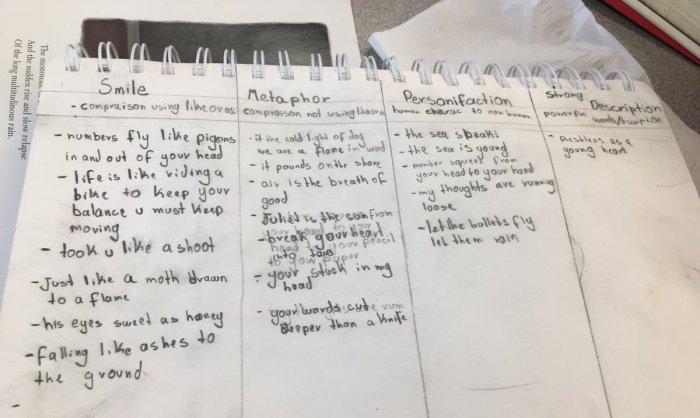 The
And the sudden rise and slow relapse
Of the long multitudinous rain.
Smile
- compraison using like or as
- numbers fly like pigons
in and out of your head
- life is like riding a
bike to keep your
balance u must keep
moving
- took u like a shoot
- Just like a moth drawn
to a flame
- his eyes sweet as honey
- falling like ashes to
the ground
-
Metaphor
compraison not using
- if the cold light of day
we are a flame in wind
- it pounds on the shore
- air is the breath of
good
- Juliet is the sun from
- break your heart
into
- your stuck in my
head
- your words cut
deeper than a knife
Personifaction
human charac to non human
- the sea speaks
- the sea is yound
- number squeet from
your head to your hand
- my thoughts are running
loose
- let the bullets fly
let them rain
strong Description
powerful words/
- Restless as a
young heart